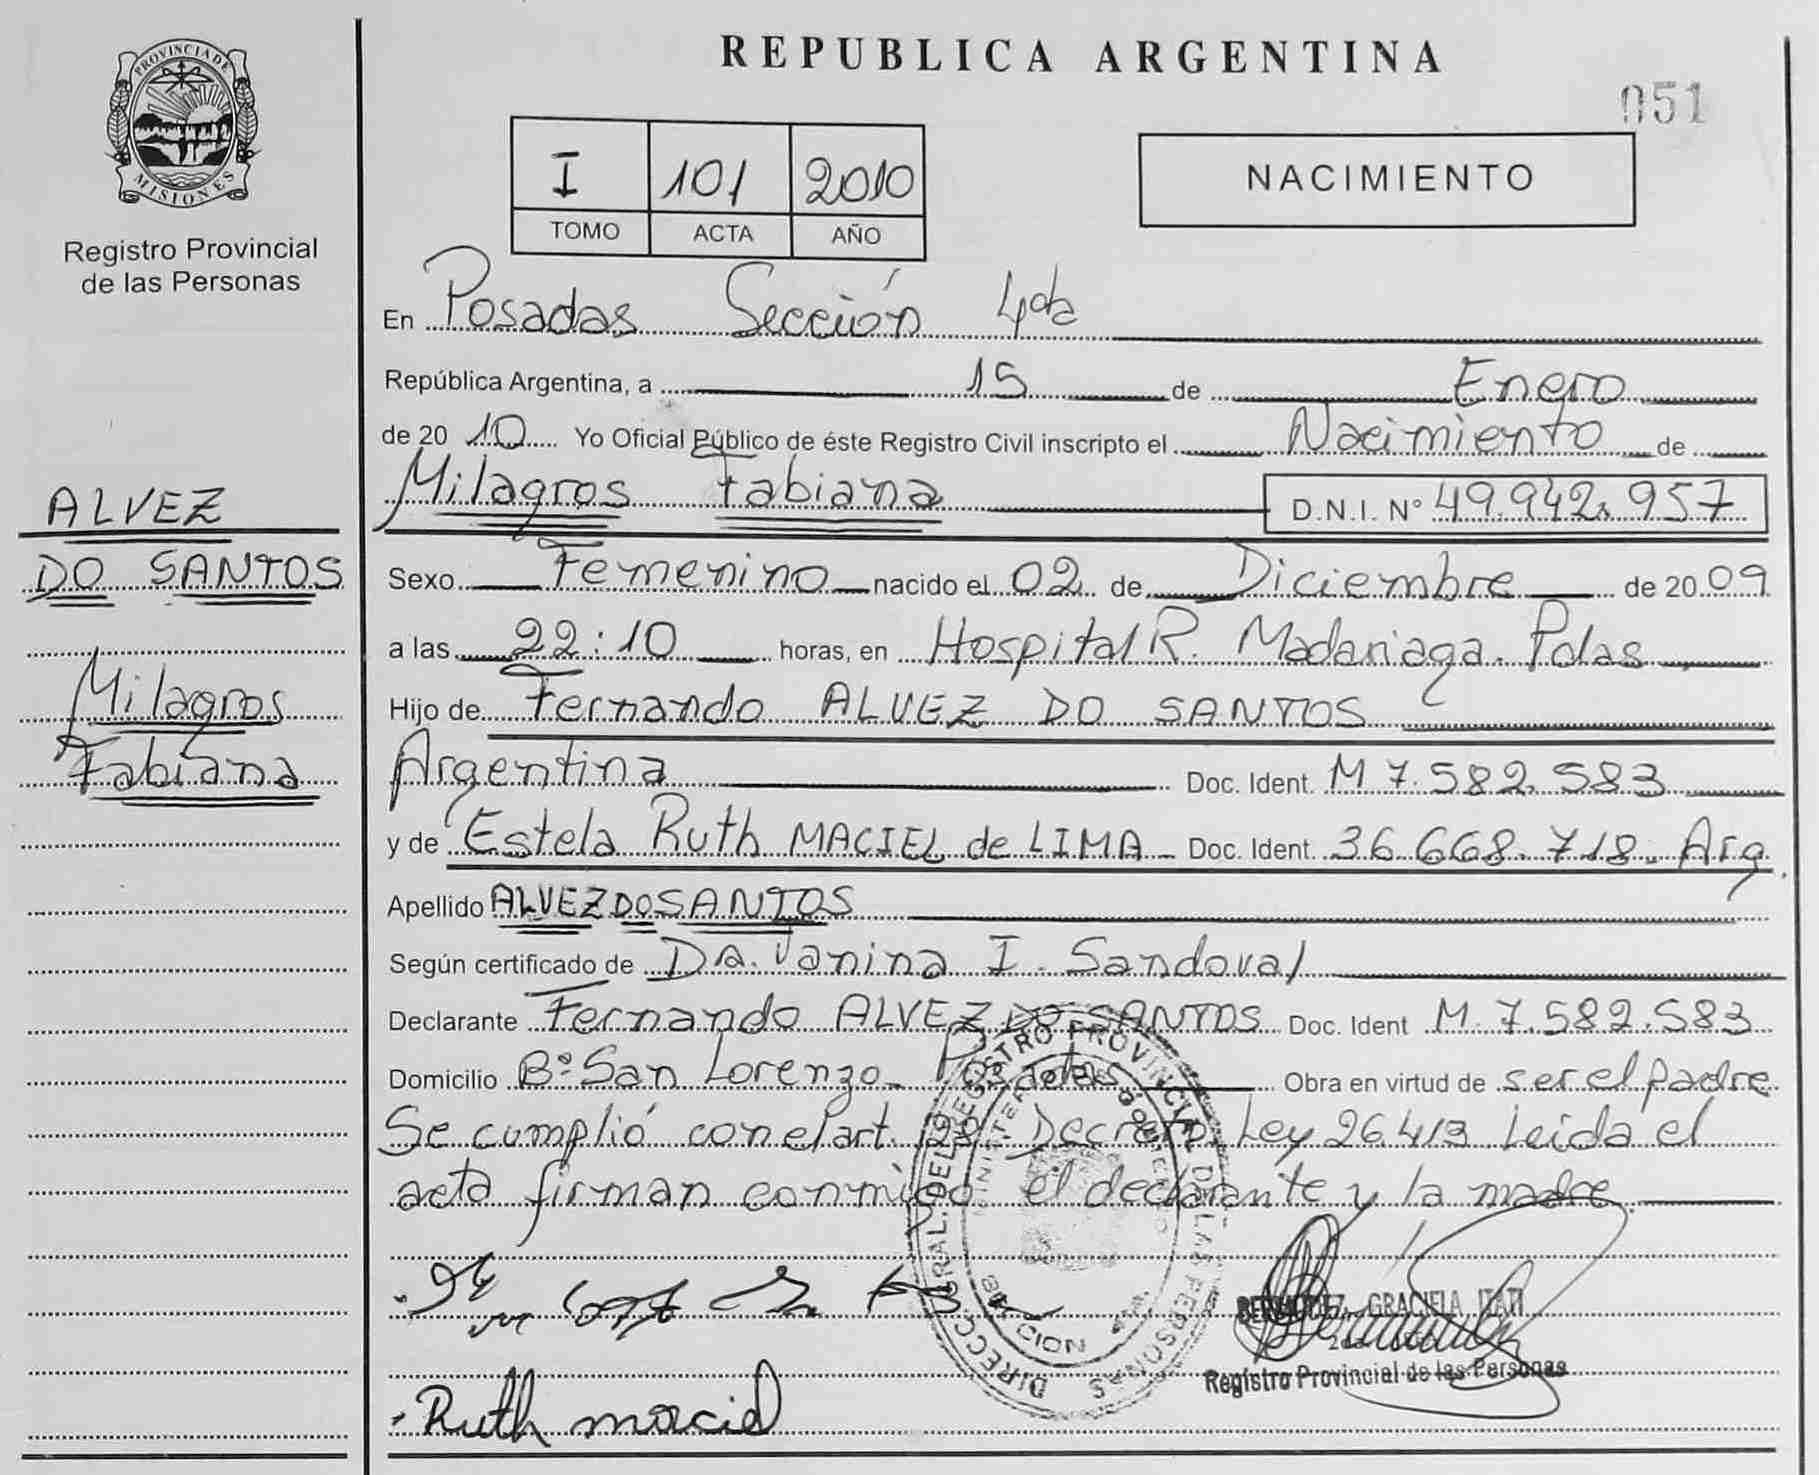 PROVINCIA DE
MISIONES
Registro Provincial
de las Personas
ALVEZ
DO SANTOS
Milagros
Fabiana
REPUBLICA ARGENTINA
051
I 101 2010
TOMO ACTA AÑO
NACIMIENTO
En Posadas Sección 4da
República Argentina, a 15 de Enero
de 2010 Yo Oficial Público de éste Registro Civil inscripto el Nacimiento de
Milagros Fabiana D.N.I. Nº 49.942.957
Sexo Femenino nacido el 02 de Diciembre de 2009
a las 22:10 horas, en Hospital R. Madariaga. Pdas
Hijo de Fernando ALVEZ DO SANTOS
Argentina Doc. Ident. M 7.582.583
y de Estela Ruth MACIEL de LIMA - Doc. Ident. 36.668.718. Arg.
Apellido ALVEZ DO SANTOS
Según certificado de Dra. Vanina I. Sandoval
Declarante Fernando ALVEZ DO SANTOS Doc. Ident M. 7.582.583
Domicilio Bº San Lorenzo - Posadas. Obra en virtud de ser el padre
Se cumplió con el art. Decreto Ley 26.413 Leida el
acta firman conmigo el declarante y la madre.
DIRECC. GRAL. DEL REGISTRO PROVINCIAL DE LAS PERSONAS
GRACIELA ITATI
Registro Provincial de las Personas
Ruth maciel